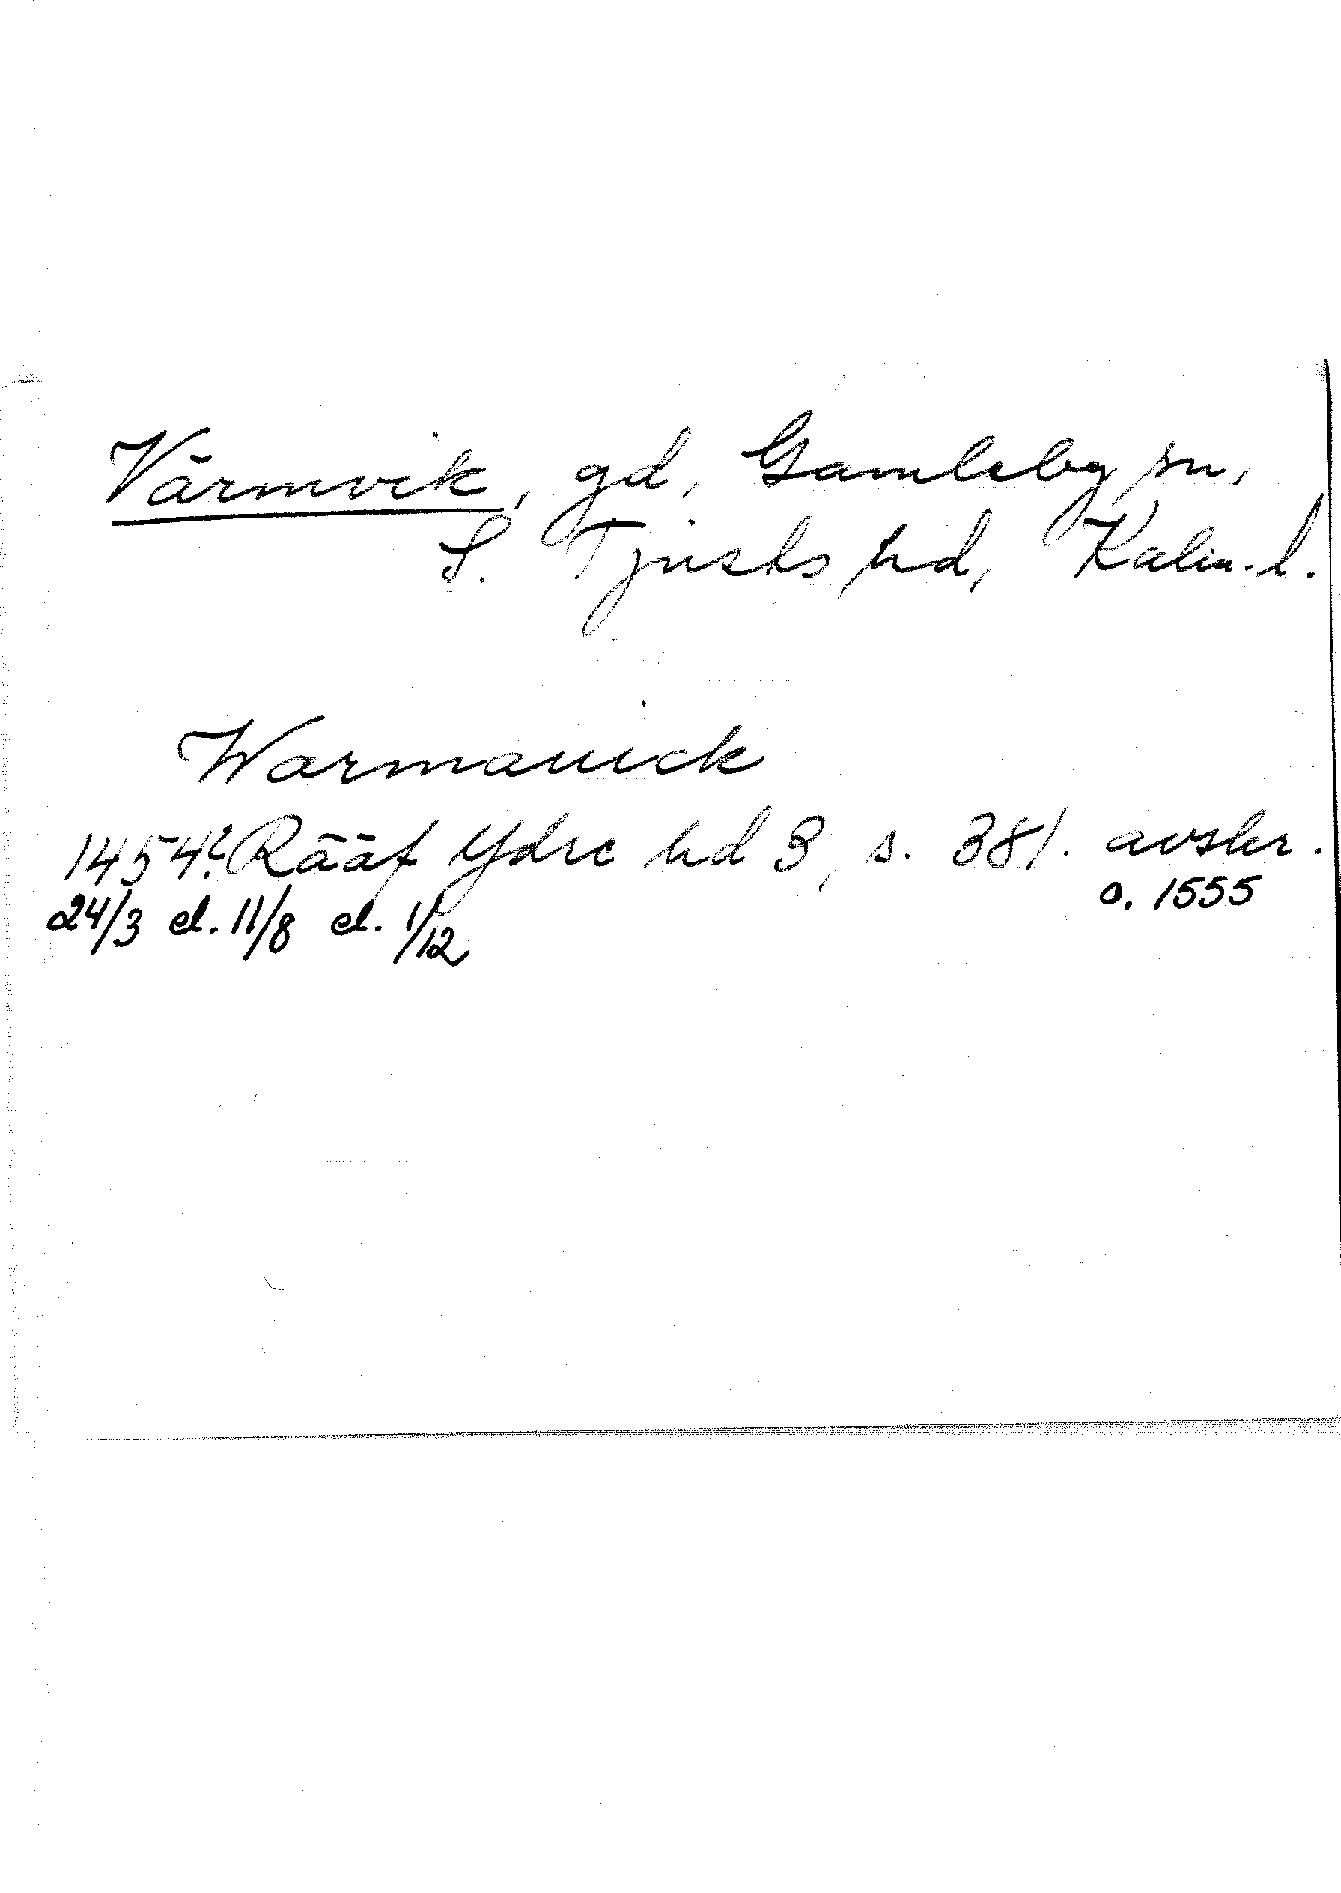 Värmvik, gd, Gamleby sn,
S. Tjusts hd, Kalm. l.
Warmauick
1454? Rääf Ydre hd 3, s. 381. avskr.
24/3 el. 11/8 el. 1/12 o. 1555